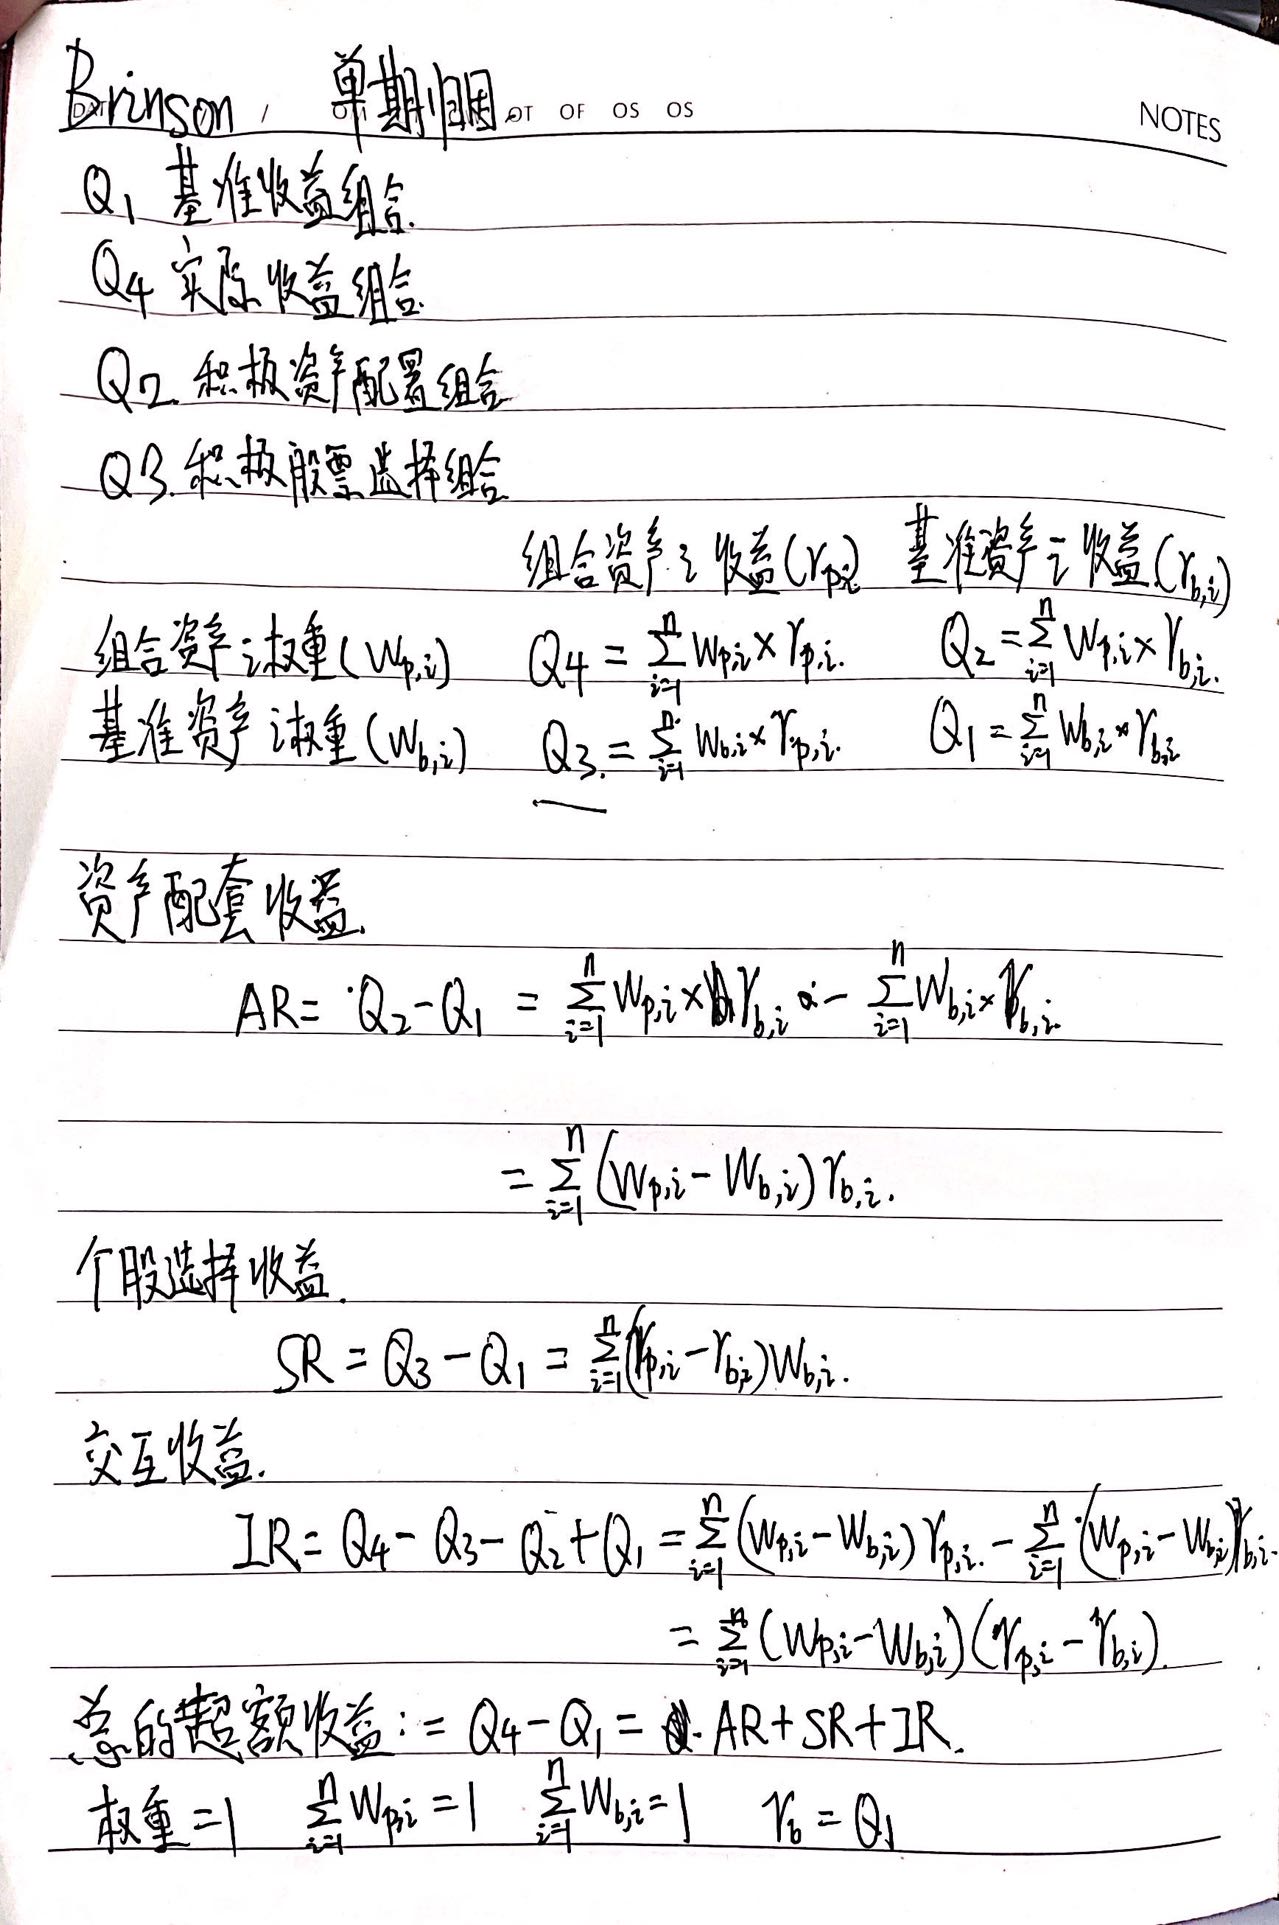 Brinson 单期归因
DAT / OT OF OS OS NOTES
Q₁ 基准收益组合.
Q₄ 实际收益组合.
Q₂. 积极资产配置组合
Q₃. 积极股票选择组合
组合资产i收益(r_{p,i}) 基准资产i收益(r_{b,i})
组合资产i权重(W_{p,i}) Q₄ = \sum_{i=1}^{n} W_{p,i} × r_{p,i}. Q₂ = \sum_{i=1}^{n} W_{p,i} × r_{b,i}.
基准资产i权重(W_{b,i}) Q₃. = \sum_{i=1}^{n} W_{b,i} × r_{p,i}. Q₁ = \sum_{i=1}^{n} W_{b,i} × r_{b,i}
资产配套收益.
AR = Q₂ - Q₁ = \sum_{i=1}^{n} W_{p,i} × r_{b,i} - \sum_{i=1}^{n} W_{b,i} × r_{b,i}.
= \sum_{i=1}^{n} (W_{p,i} - W_{b,i}) r_{b,i}.
个股选择收益.
SR = Q₃ - Q₁ = \sum_{i=1}^{n} (r_{p,i} - r_{b,i}) W_{b,i}.
交互收益.
IR = Q₄ - Q₃ - Q₂ + Q₁ = \sum_{i=1}^{n} (W_{p,i} - W_{b,i}) r_{p,i}. - \sum_{i=1}^{n} (W_{p,i} - W_{b,i}) r_{b,i}.
= \sum_{i=1}^{n} (W_{p,i} - W_{b,i})(r_{p,i} - r_{b,i}).
总的超额收益: = Q₄ - Q₁ = AR + SR + IR.
权重 = 1 \sum_{i=1}^{n} W_{p,i} = 1 \sum_{i=1}^{n} W_{b,i} = 1 r_b = Q₁